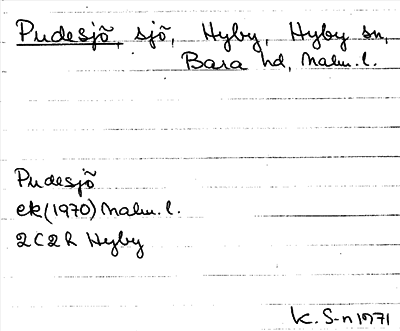 Pudesjö, sjö, Hyby, Hyby sn,
Bara hd, Malm. l.
Pudesjö
ek (1970) Malm. l.
2C2h Hyby
K. S-n 1971